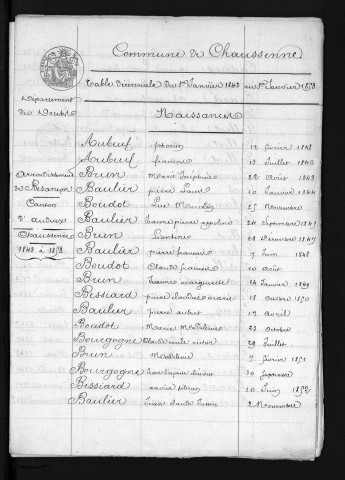 Commune de Chaussenne
Table Décennale du 1er Janvier 1843 au 1er Janvier 1853
Département
du Doubs
Naissances
Arrondissement
de Besançon
Canton
d'Audeux
Chaussenne
1843 à 1853
Aubeuf 12 février 1843
Aubeuf françois 13 Juillet 1843
Brun Marie Joséphine 22 Août 1843
Baulier pierre Louis 10 Janvier 1844
Boudot Luc 25 Novembre
Baulier Jeanne pierre 24 Septembre 1847
Brun Léontine 28 Décembre 1847
Baulier pierre françois 9 Juin 1848
Boudot Claude françois 10 Août
Brun Jeanne marguerite 24 Janvier 1849
Bessiard pierre marie 18 Octobre 1850
Baulier pierre aubert 17 Avril
Boudot Marie Madeleine 23 Octobre
Bourgogne victor 29 Juillet
Brun Madeleine 7 février 1851
Bourgogne 30 Septembre
Bessiard xavier 10 Juin 1852
Baulier Jean Claude Justin 2 Novembre